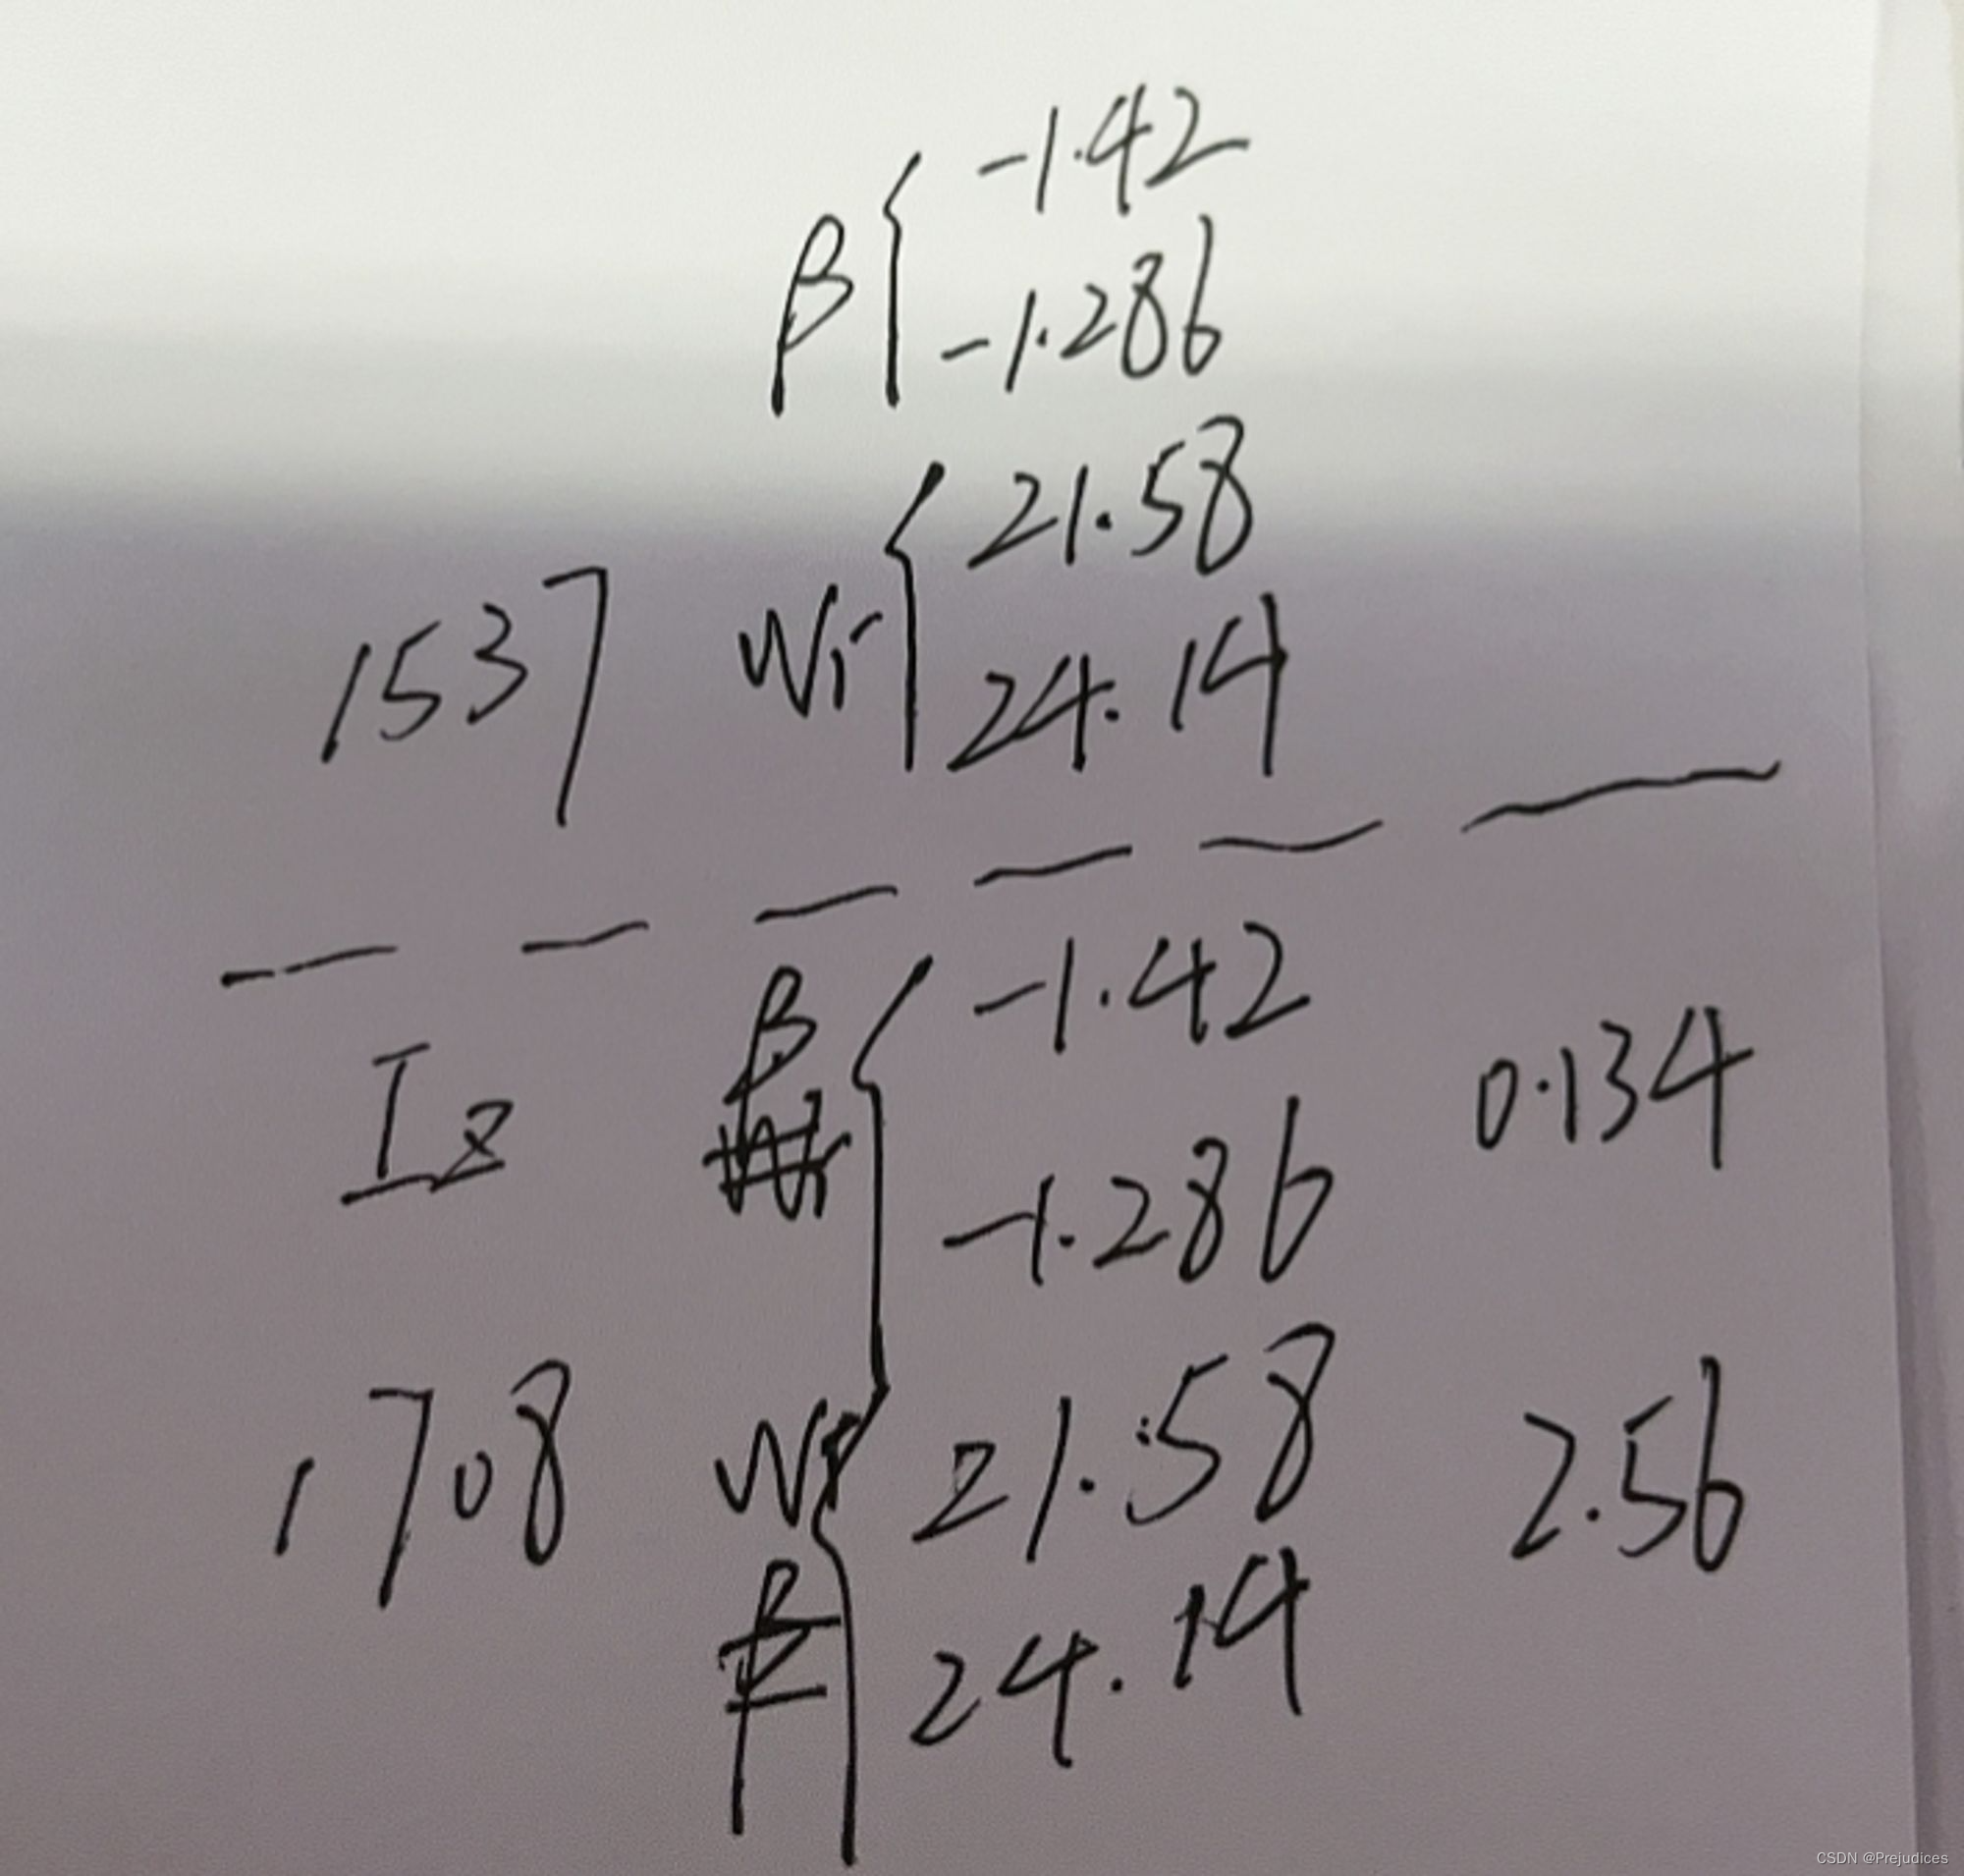 β { -1.42
-1.286
1537 Wr { 21.58
24.14
β { -1.42 0.134
Iz
-1.286
1708 Wr { 21.58 2.56
24.14
CSDN @Prejudices